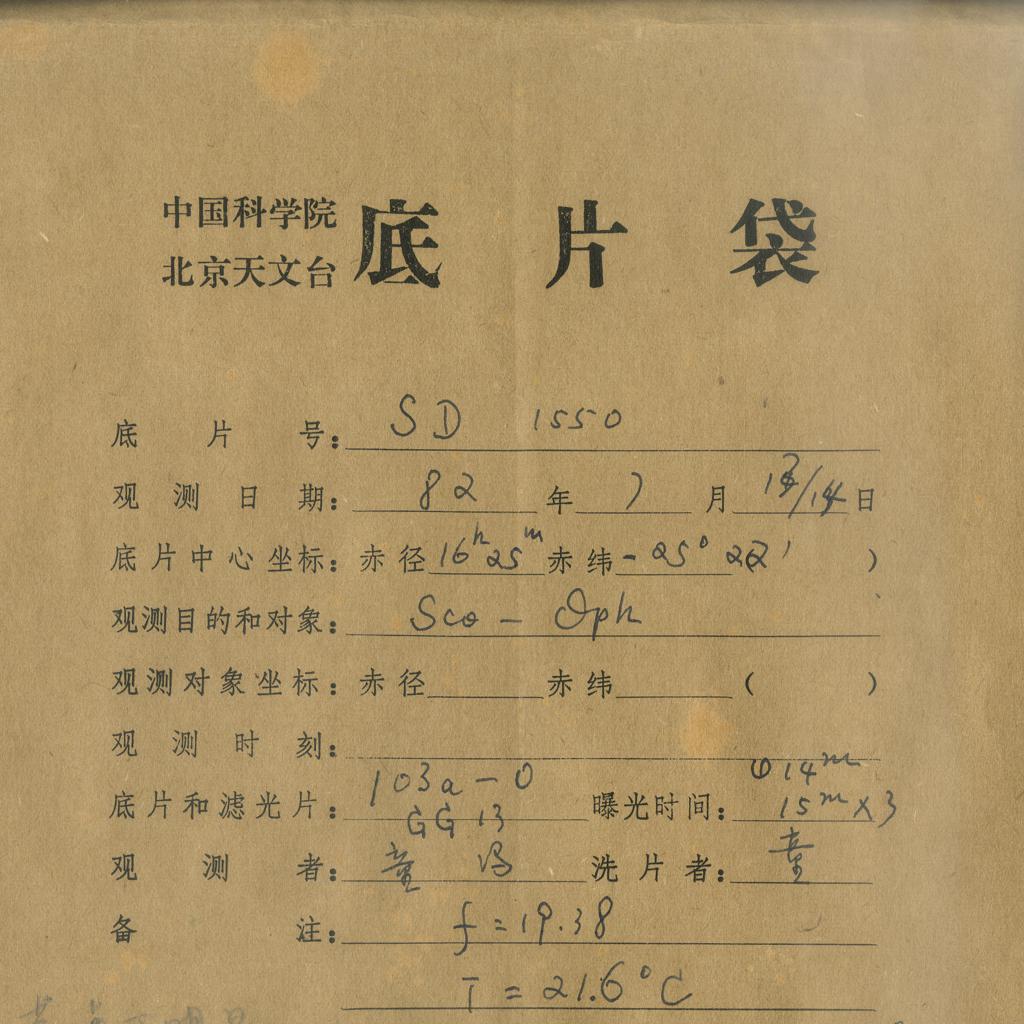 中国科学院
北京天文台
底片袋
底片号: SD 1550
观测日期: 82 年 7 月 13/14 日
底片中心坐标: 赤径 16h25m 赤纬 -25°22' )
观测目的和对象: Sco - Oph
观测对象坐标: 赤径 赤纬 ( )
观测时刻:
底片和滤光片: 103a-O GG 13 曝光时间: 14m 15m×3
观测者: 童 冯 洗片者: 童
备注: f=19.38
T = 21.6°C